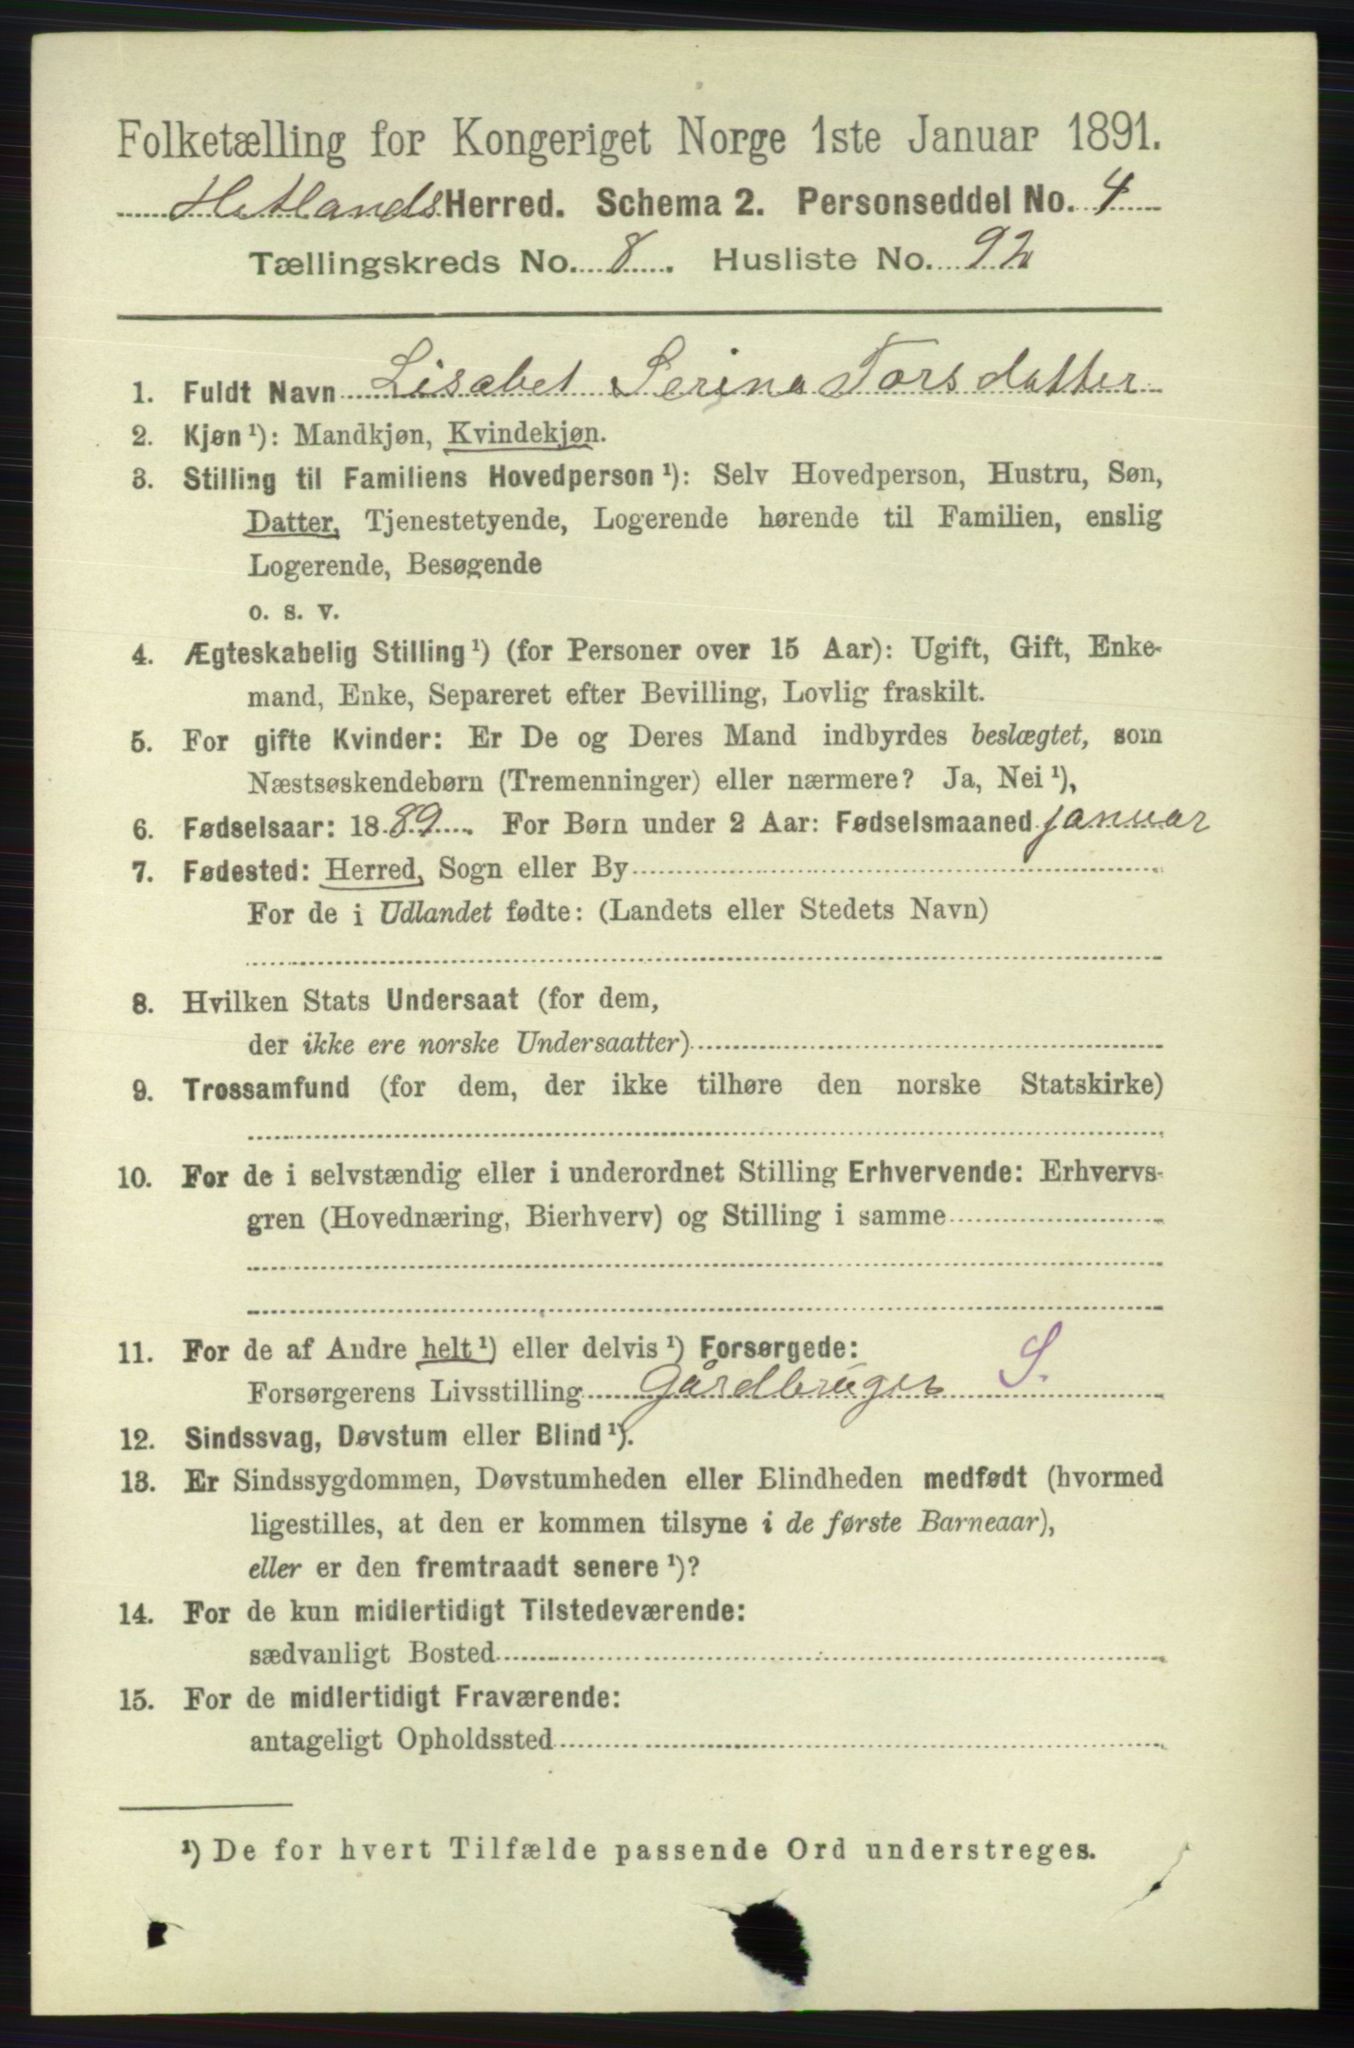 Folketælling for Kongeriget Norge 1ste Januar 1891.
Hetlands Herred. Schema 2. Personseddel No. 4
Tællingskreds No. 8. Husliste No. 92
1. Fuldt Navn Lisabet Serina Torsdatter
2. Kjøn ¹): Mandkjøn, Kvindekjøn.
3. Stilling til Familiens Hovedperson ¹): Selv Hovedperson, Hustru, Søn,
Datter, Tjenestetyende, Logerende hørende til Familien, enslig
Logerende, Besøgende
o. s. v.
4. Ægteskabelig Stilling ¹) (for Personer over 15 Aar): Ugift, Gift, Enke-
mand, Enke, Separeret efter Bevilling, Lovlig fraskilt.
5. For gifte Kvinder: Er De og Deres Mand indbyrdes beslægtet, som
Næstsøskendebørn (Tremenninger) eller nærmere? Ja, Nei ¹),
6. Fødselsaar: 1889. For Børn under 2 Aar: Fødselsmaaned januar
7. Fødested: Herred, Sogn eller By
For de i Udlandet fødte: (Landets eller Stedets Navn)
8. Hvilken Stats Undersaat (for dem,
der ikke ere norske Undersaatter)
9. Trossamfund (for dem, der ikke tilhøre den norske Statskirke)
10. For de i selvstændig eller i underordnet Stilling Erhvervende: Erhvervs-
gren (Hovednæring, Bierhverv) og Stilling i samme
11. For de af Andre helt ¹) eller delvis ¹) Forsørgede:
Forsørgerens Livsstilling Gårdbruger S.
12. Sindssvag, Døvstum eller Blind ¹).
13. Er Sindssygdommen, Døvstumheden eller Blindheden medfødt (hvormed
ligestilles, at den er kommen tilsyne i de første Barneaar),
eller er den fremtraadt senere ¹)?
14. For de kun midlertidigt Tilstedeværende:
sædvanligt Bosted
15. For de midlertidigt Fraværende:
antageligt Opholdssted
¹) De for hvert Tilfælde passende Ord understreges.